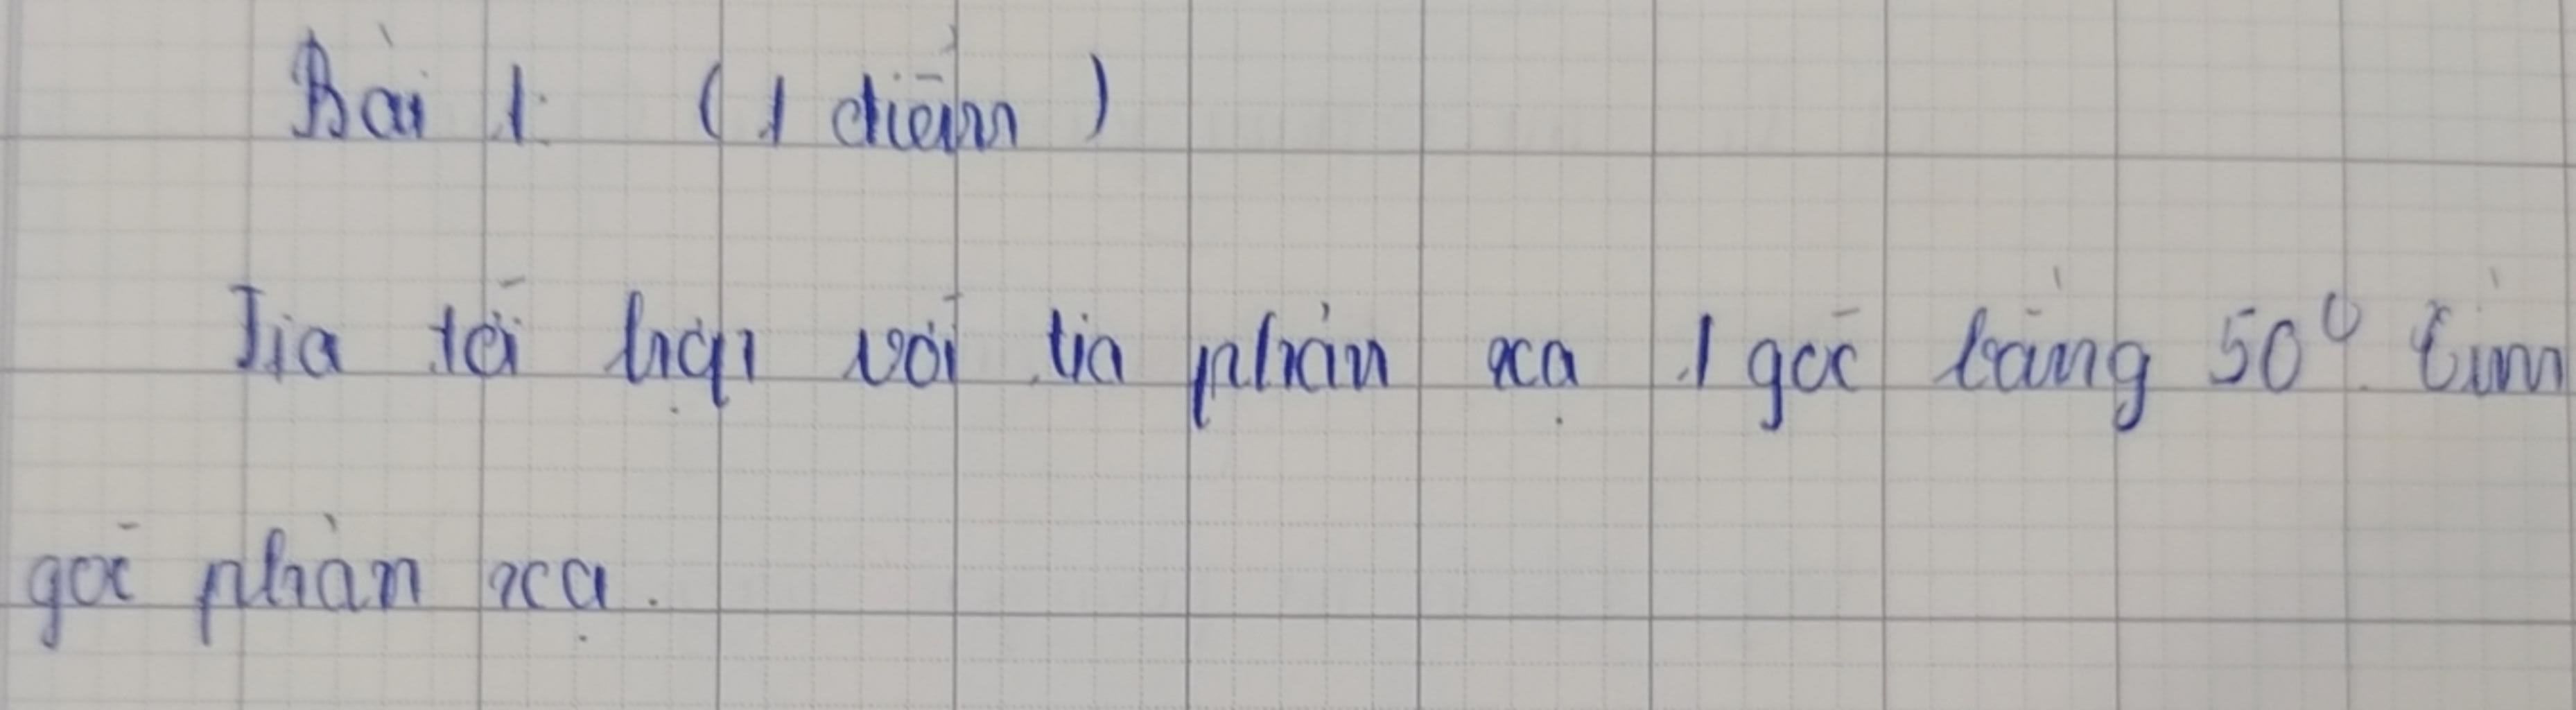 Bài 1: (1 điểm)
Tia tới hợp với tia phản xạ 1 góc bằng 50⁰. Tìm
góc phản xạ.